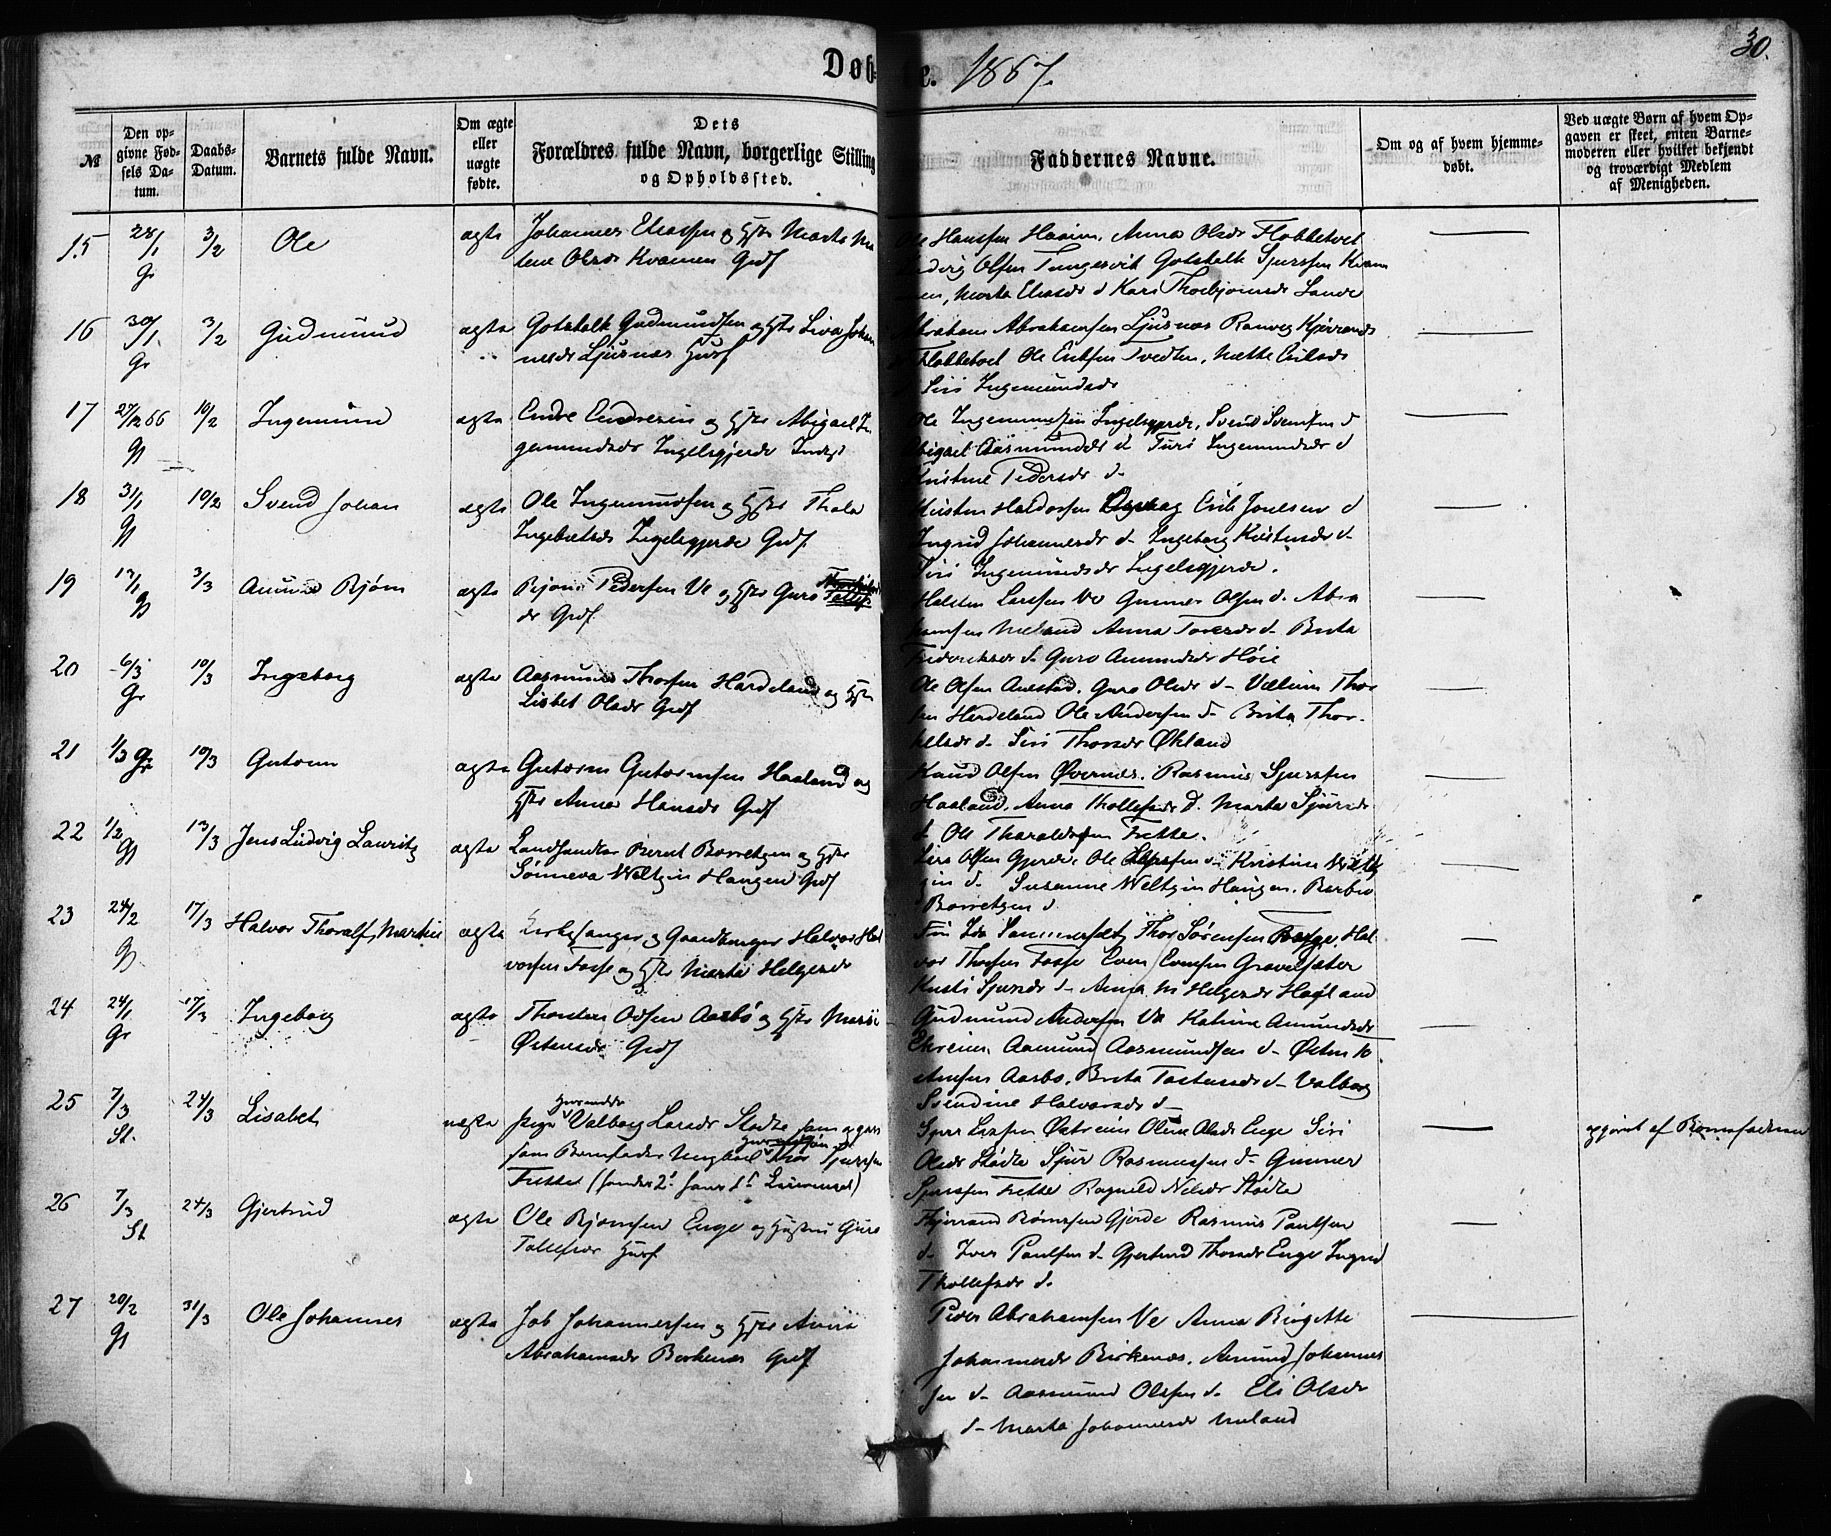 Døb- e. 1867. 30.
№ Den opgivne Fødsels Datum. Daabs-Datum. Barnets fulde Navn. Om ægte eller uægte fødte. Dets Forældres fulde Navn, borgerlige Stilling og Opholdssted. Faddernes Navne. Om og af hvem hjemmedøbt. Ved uægte Børn af hvem Opgaven er skeet, enten Barnemoderen eller hvilket bekjendt og troværdigt Medlem af Menigheden.
15 28/1 Gr 3/2 Ole ægte Johannes Eliassen og Hstr Marta Ma-
tene Olsdr Kvamen Grdf
Ole Hanssen Haaim, Anna Olsdr Flokketvet
Ludvig Olsen Tungesvik Gotskalk Sjurssen Kvam
men, Marta Eliasdr d Kari Thorbjørnsdr Lande
16 30/1 Gr 3/2 Gudmund ægte Gotskalk Gudmundsen og Hstr Siva Johan
nesdr Ljusnæs Husf
Abraham Abrahamsen Ljusnæs Ranveg Kjerrands
Flokketvet Ole Eriksen Tvedten, Mette Eriksdr
Siri Ingemundsdr
17 27/12 66 Gj 10/2 Ingemund ægte Endre Endresen og Hstr Abigael In
gemundsdr Ingelsgjerde Inders
Ole Ingemundsen Ingelsgjerde, Svend Svendsen d
Abigael Aasmundsdr d Turi Ingemundsdr d
Kristine Pedersdr d-
18 31/1 Gj 10/2 Svend Johan ægte Ole Ingemundsen og Hstr Thala
Ingebretsdr Ingelsgjerde Grdf.
Kristen Haldorsen Erik Jonesen d
Ingrid Johannesdr d- Ingeborg Kristensdr d-
Siri Ingemundsdr Ingelsgjerde.
19 13/1 Gj 3/3 Amund Bjørn ægte Bjørn Pedersen Ve og Hstr Guro
dr Grdf
Halsten Larssen Ve Gunnar Olsen d. Abra
hamsen Meland Anna Toresdr d- Brita
Frederiksdr d- Guro Amundsdr Høie
20 6/3 Gr 10/3 Ingeborg ægte Aasmund Thorsen Hardeland og Hstr
Lisbet Olsdr Grdf
Ole Olsen Aulestad. Guro Olsdr d- Vællum Thor
sen Hardeland Ole Andersen d- Brita Thor-
kelsdr d- Siri Thorsdr Økland
21 1/3 Gr 10/3 Gutorm ægte Gutorm Gutormsen Haaland og
Hstr Anna Hansdr Grdf
Knud Olsen Øvernæs. Rasmus Sjurssen
Haaland, Anna Thollefsdr d. Marta Sjursdr
d- Ole Tharaldssen Frette.
22 1/2 Gj 13/3 Jens Ludvig Lauritz ægte Landhandler Bernt Borretzen og Hstr
Sønneva Weltzin Haugen Grdf
Lars Olsen Gjerde, Ole d- Kristine Welt
zin d- Susanne Weltzin Haugen. Barbro
Borretzen d.
23 24/2 Gj 17/3 Halvor Thoralf Martin ægte Kirkesanger og Gaardbruger Halvor Hal
vorsen Fosse og Hstr Marta Helgesdr
Thor Sørensen Hal-
vor Thorsen Fosse Even Evensen Gravelsæter
Kristi Sjursdr d- Anna M Helgesdr Høiland
24 24/1 Gr 17/3 Ingeborg ægte Thorsten Odsen Aarbø og Hstr Mari
Østensdr Grdf
Gudmund Andersen Ve Katrine Amundsdr
Ekreim. Aamund Aasmundsen d- Østen
stensen Aarbo. Brita Tostensdr d- Valborg
Svendine Halvorsdr d-
25 7/3 St. 24/3 Lisabet uægte Pige Valborg Larsdr Stødle som opgav
som Barnefader Ungkarl Thor Sjurssen
Frette (hendes 2t hans 1t Leiermaal)
Sjur Larsen Østreim Oline Olsdr Enge Siri
Olsdr Stødle Sjur Rasmussen d- Gunner
Sjurssen Frette Ragnild Nilsdr Stødle
opgivet af Barnefaderen
26 7/3 St 24/3 Gjertrud ægte Ole Bjørnsen Enge og Hustru Guro
Tollefsdr Husf
Kjerrand Bjørnssen Gjerde Rasmus Paulsen
d- Iver Paulsen d- Gjertrud Thorsdr Enge Ingrid
Thollefsdr d.
27 20/2 Gj 31/3 Ole Johannes ægte Job Johannessen og Hstr Anna
Abrahamsdr Birkenæs Grdf
Peder Abrahamsen Ve Anna Birgitte
Johannesdr Birkenæs. Amund Johannes
sen d- Aasmund Olssen d- Eli Olsdr
d- Marta Johannesdr Meland